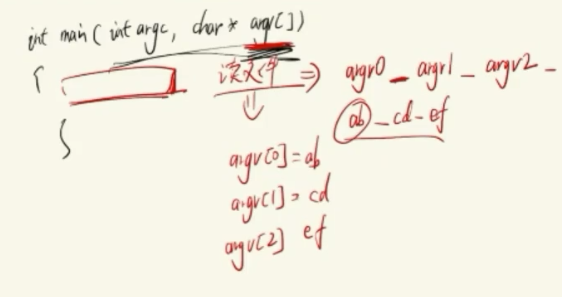 int main( int argc, char * argv[])
{
读文件 => argv0 _ argv1 _ argv2 _
ab _ cd _ ef
argv[0] = ab
argv[1] = cd
argv[2] ef
}